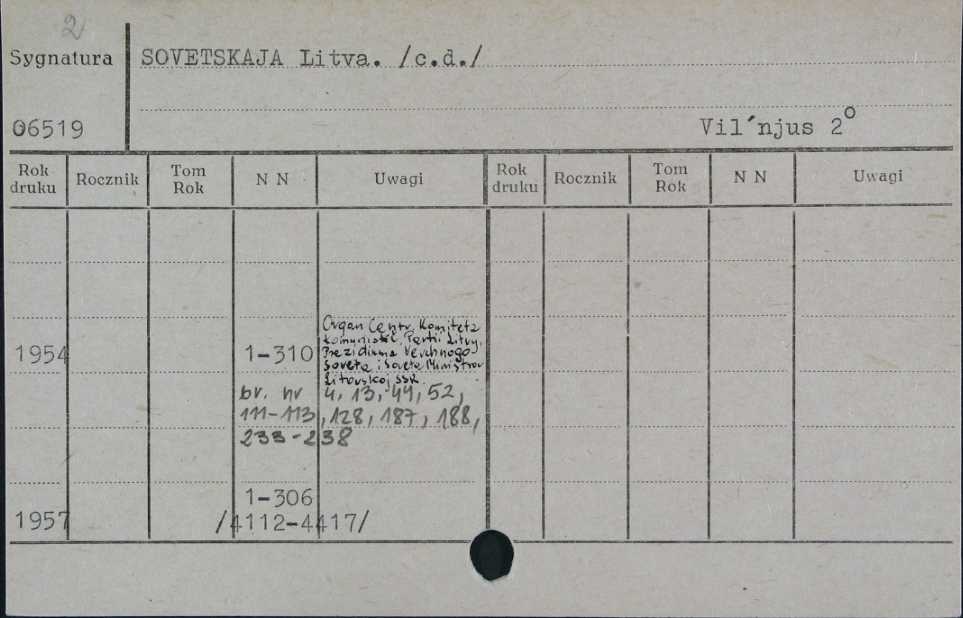 2
Sygnatura
SOVETSKAJA Litva. /c.d./
06519
Vil´njus 2°
Rok druku Rocznik Tom Rok N N Uwagi Rok druku Rocznik Tom Rok N N Uwagi
Organ Centr. Komiteta
Kommunist. Partii Litvy,
Prezidiuma Verchnogo
1954 1-310
Soveta i Soveta Ministrov
Litovskoj SSR.
br. nr 4, 13, 44, 52,
111-113, 128, 187, 188,
233-238
1-306
1957 /4112-4417/